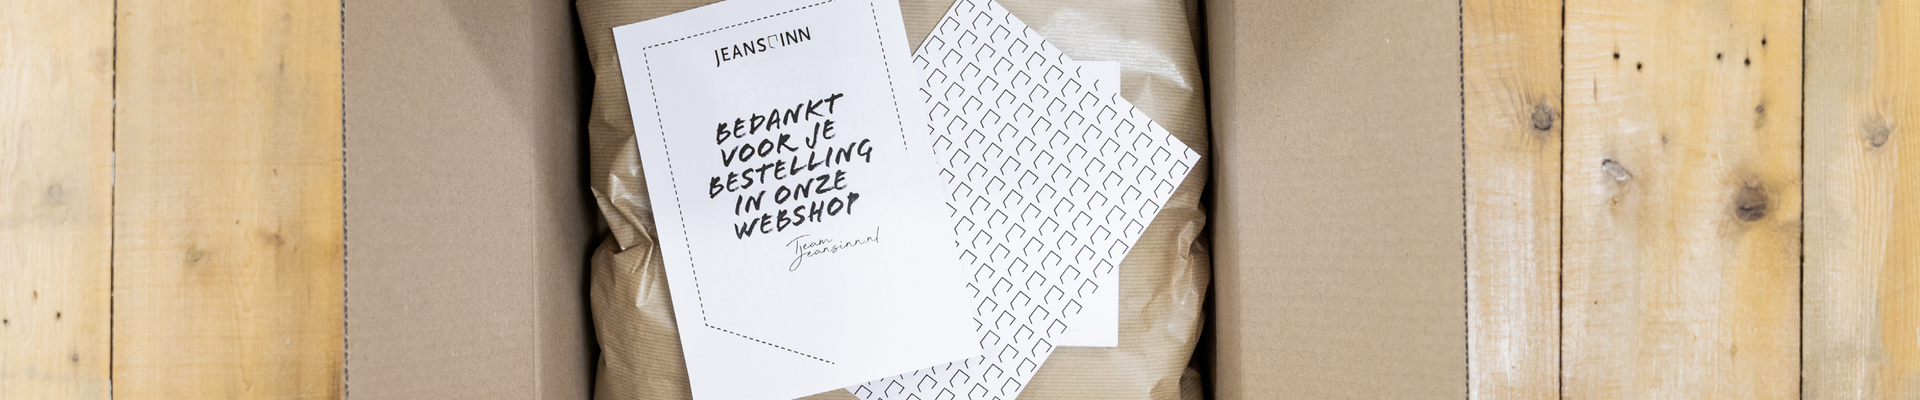 JEANS INN
BEDANKT
VOOR JE
BESTELLING
IN ONZE
WEBSHOP
Team
Jeansinn.nl